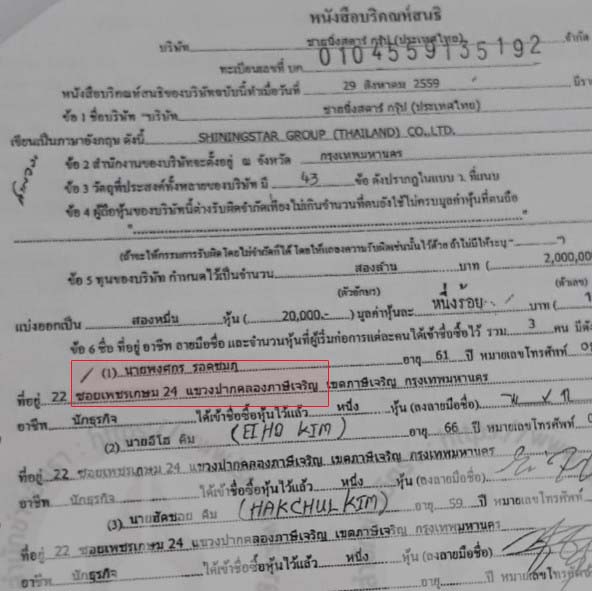 หนังสือบริคณห์สนธิ
บริษัท ชายนิ่งสตาร์ กรุ๊ป (ประเทศไทย) จำกัด
ทะเบียนเลขที่ บก. 0104559135192
หนังสือบริคณห์สนธิของบริษัทฉบับนี้ทำเมื่อวันที่ 29 สิงหาคม 2559 มีรา
ข้อ 1 ชื่อบริษัท "บริษัท ชายนิ่งสตาร์ กรุ๊ป (ประเทศไทย)
เขียนเป็นภาษาอังกฤษ ดังนี้ SHININGSTAR GROUP (THAILAND) CO.,LTD.
ข้อ 2 สำนักงานของบริษัทจะตั้งอยู่ ณ จังหวัด กรุงเทพมหานคร
ข้อ 3 วัตถุที่ประสงค์ทั้งหลายของบริษัท มี 43 ข้อ ดังปรากฏในแบบ ว. ที่แนบ
ข้อ 4 ผู้ถือหุ้นของบริษัทนี้ต่างรับผิดจำกัดเพียงไม่เกินจำนวนที่ตนยังใช้ไม่ครบมูลค่าหุ้นที่ตนถือ
(ถ้าจะให้กรรมการรับผิด โดยไม่จำกัดก็ได้ โดยให้แถลงความรับผิดเช่นนั้นไว้ด้วย ถ้าไม่มีให้ระบุ "-")
ข้อ 5 ทุนของบริษัท กำหนดไว้เป็นจำนวน สองล้าน บาท ( 2,000,00
(ตัวอักษร) (ตัวเลข)
แบ่งออกเป็น สองหมื่น หุ้น ( 20,000.- ) มูลค่าหุ้นละ หนึ่งร้อย บาท ( 1
ข้อ 6 ชื่อ ที่อยู่ อาชีพ ลายมือชื่อ และจำนวนหุ้นที่ผู้เริ่มก่อการแต่ละคนได้เข้าชื่อซื้อไว้ รวม 3 คน มีดัง
(1) นายพงศกร รอดชมภู อายุ 61 ปี หมายเลขโทรศัพท์ 0
ที่อยู่ 22 ซอยเพชรเกษม 24 แขวงปากคลองภาษีเจริญ เขตภาษีเจริญ กรุงเทพมหานคร
อาชีพ นักธุรกิจ ได้เข้าชื่อซื้อหุ้นไว้แล้ว หนึ่ง หุ้น (ลงลายมือชื่อ)
(2) นายอีโฮ คิม (EIHO KIM) อายุ 66 ปี หมายเลขโทรศัพท์
ที่อยู่ 22 ซอยเพชรเกษม 24 แขวงปากคลองภาษีเจริญ เขตภาษีเจริญ กรุงเทพมหานคร
อาชีพ นักธุรกิจ ได้เข้าชื่อซื้อหุ้นไว้แล้ว หนึ่ง หุ้น (ลงลายมือชื่อ)
(3) นายฮัคชอย คิม (HAKCHUL KIM) อายุ 59 ปี หมายเลขโทรศัพท์
ที่อยู่ 22 ซอยเพชรเกษม 24 แขวงปากคลองภาษีเจริญ เขตภาษีเจริญ กรุงเทพมหานคร
อาชีพ นักธุรกิจ ได้เข้าชื่อซื้อหุ้นไว้แล้ว หนึ่ง หุ้น (ลงลายมือชื่อ)
อายุ ปี หมายเลขโทรศัพท์